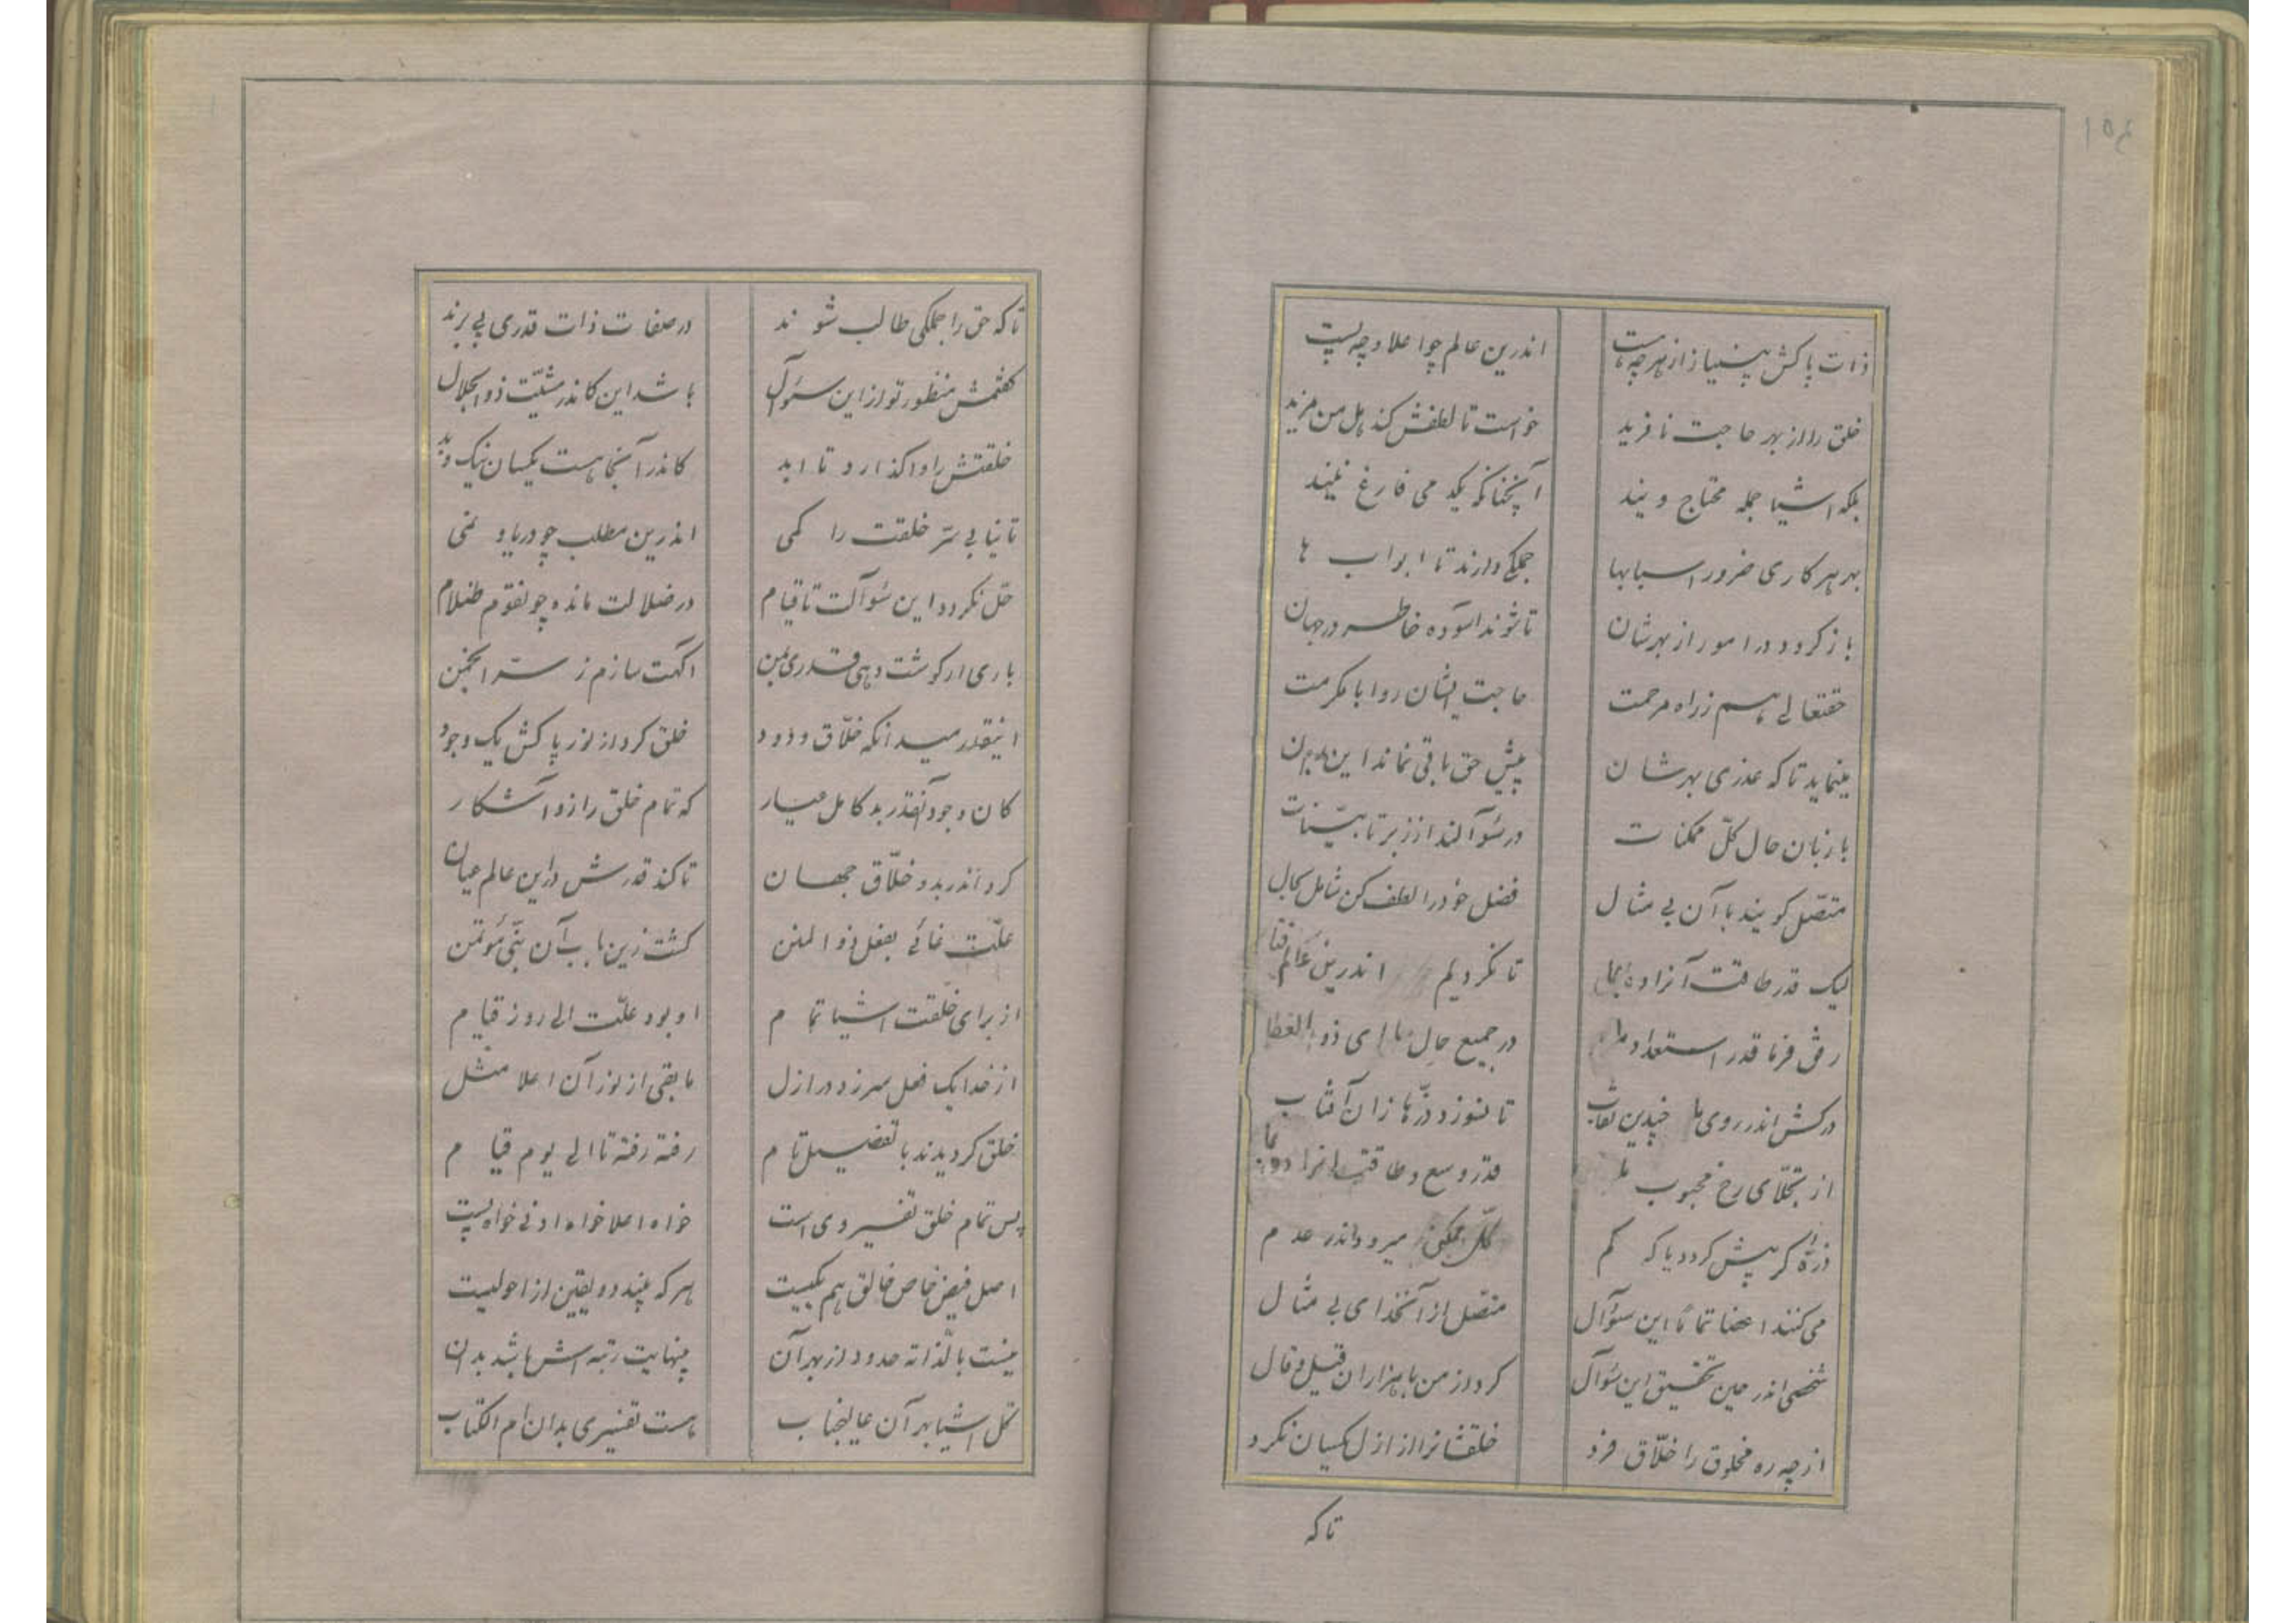 ۱۵۴
ذات پاکش بینیاز از هر چه هست اندرین عالم چو اعلا و چه پست
خلق را از بهر حاجت نافرید خواست تا لطفش کند هل من مزید
بلکه اشیا جمله محتاج ویند آنچنانکه یکدمی فارغ نیند
بهر هر کاری ضرور اسبابها جملگی دارند تا ابواب ها
باز گردد در امور از بهرشان تا شوند آسوده خاطر در جهان
حقتعالی هم ز راه مرحمت حاجت ایشان روا با مکرمت
مینماید تا که عذری بهرشان پیش حق باقی نماند این
با زبان حال کلّ ممکنات در سئوآلند از زبر تا بیّنات
متصّل گویند با آن بی مثال فضل خود را لطف کن شامل بحال
لیک قدر طاقت آنرا ده بما تا نگردیم اندرین عالم فنا
فرما قدر استعداد ما در جمیع حال ما ای ذو العطا
درکش اندر روی ما چندین نقاب تا نسوزد ذرّها زان آفتاب
از تجلّای رخ محبوب ما قدر وسع و طاقت انرا بما
ذرّهٔ گر بیش گردد یا که کم کلّ ممکن میرود اندر عدم
می کنند اعضا تماماً این سئوآل متصّل از آنخدای بی مثال
شخصی اندر حین تحقیق این سئوآل کرد از من با هزاران قیل و قال
از چه ره مخلوق را خلّاق فرد خلقشانرا از ازل یکسان نکرد
تا که
تا که حق را جملگی طالب شوند در صفات ذات قدری پی برند
گفتمش منظور تو از این سئوآل باشد این کاندر مشیّت ذو الجلال
خلقتش را واگذارد تا ابد کاندر آنجا هست یکسان نیک و بد
تا نیابی سرّ خلقت را کمی اندرین مطلب چو دریا و نمی
حلّ نگردد این سئوآلت تا قیام در ضلالت مانده چو نقوم ظلام
باری ار گوشت دهی قدری بمن آگهت سازم ز سرّ انجمن
اینقدر میدانکه خلّاق ودود خلق کرد از نور پاکش یک وجود
کان وجود آنقدر بد کامل عیار که تمام خلق را زو آشکار
کرد اندر بدو خلّاق جهان تا کند قدرش در این عالم عیان
علّت غائی بفعل ذو المنن گشت زین باب آن نبیّ مؤتمن
از برای خلقت اشیا تمام او بود علّت الی روز قیام
از خدا یک فعل سر زد در ازل مابقی از نور آن اعلا مثل
خلق گردیدند با تفضیل تام رفته رفته تا الی یوم قیام
پس تمام خلق تفسیر وی است خواه اعلا خواه ادنی خواه پست
اصل فیض خاص خالق هم یکیست هر که بیند دو یقین از احولیست
نیست بالّذاته حدود از بهر آن بینهایت رتبه اش باشد بدان
کل اشیا بهر آن عالیجناب هست تفسیری بدان ام الکتاب